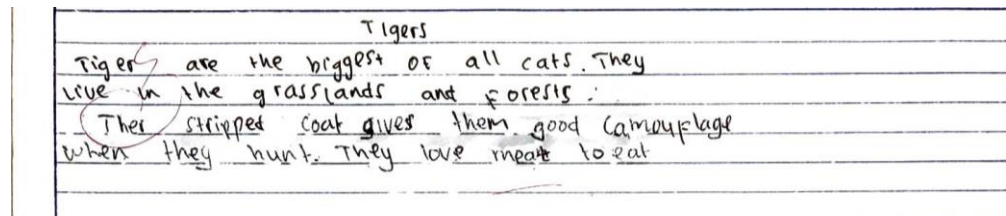 Tigers
Tigers are the biggest of all cats. They
Live in the grasslands and forests.
Ther stripped coat gives them good camouflage
when they hunt. They love meat to eat